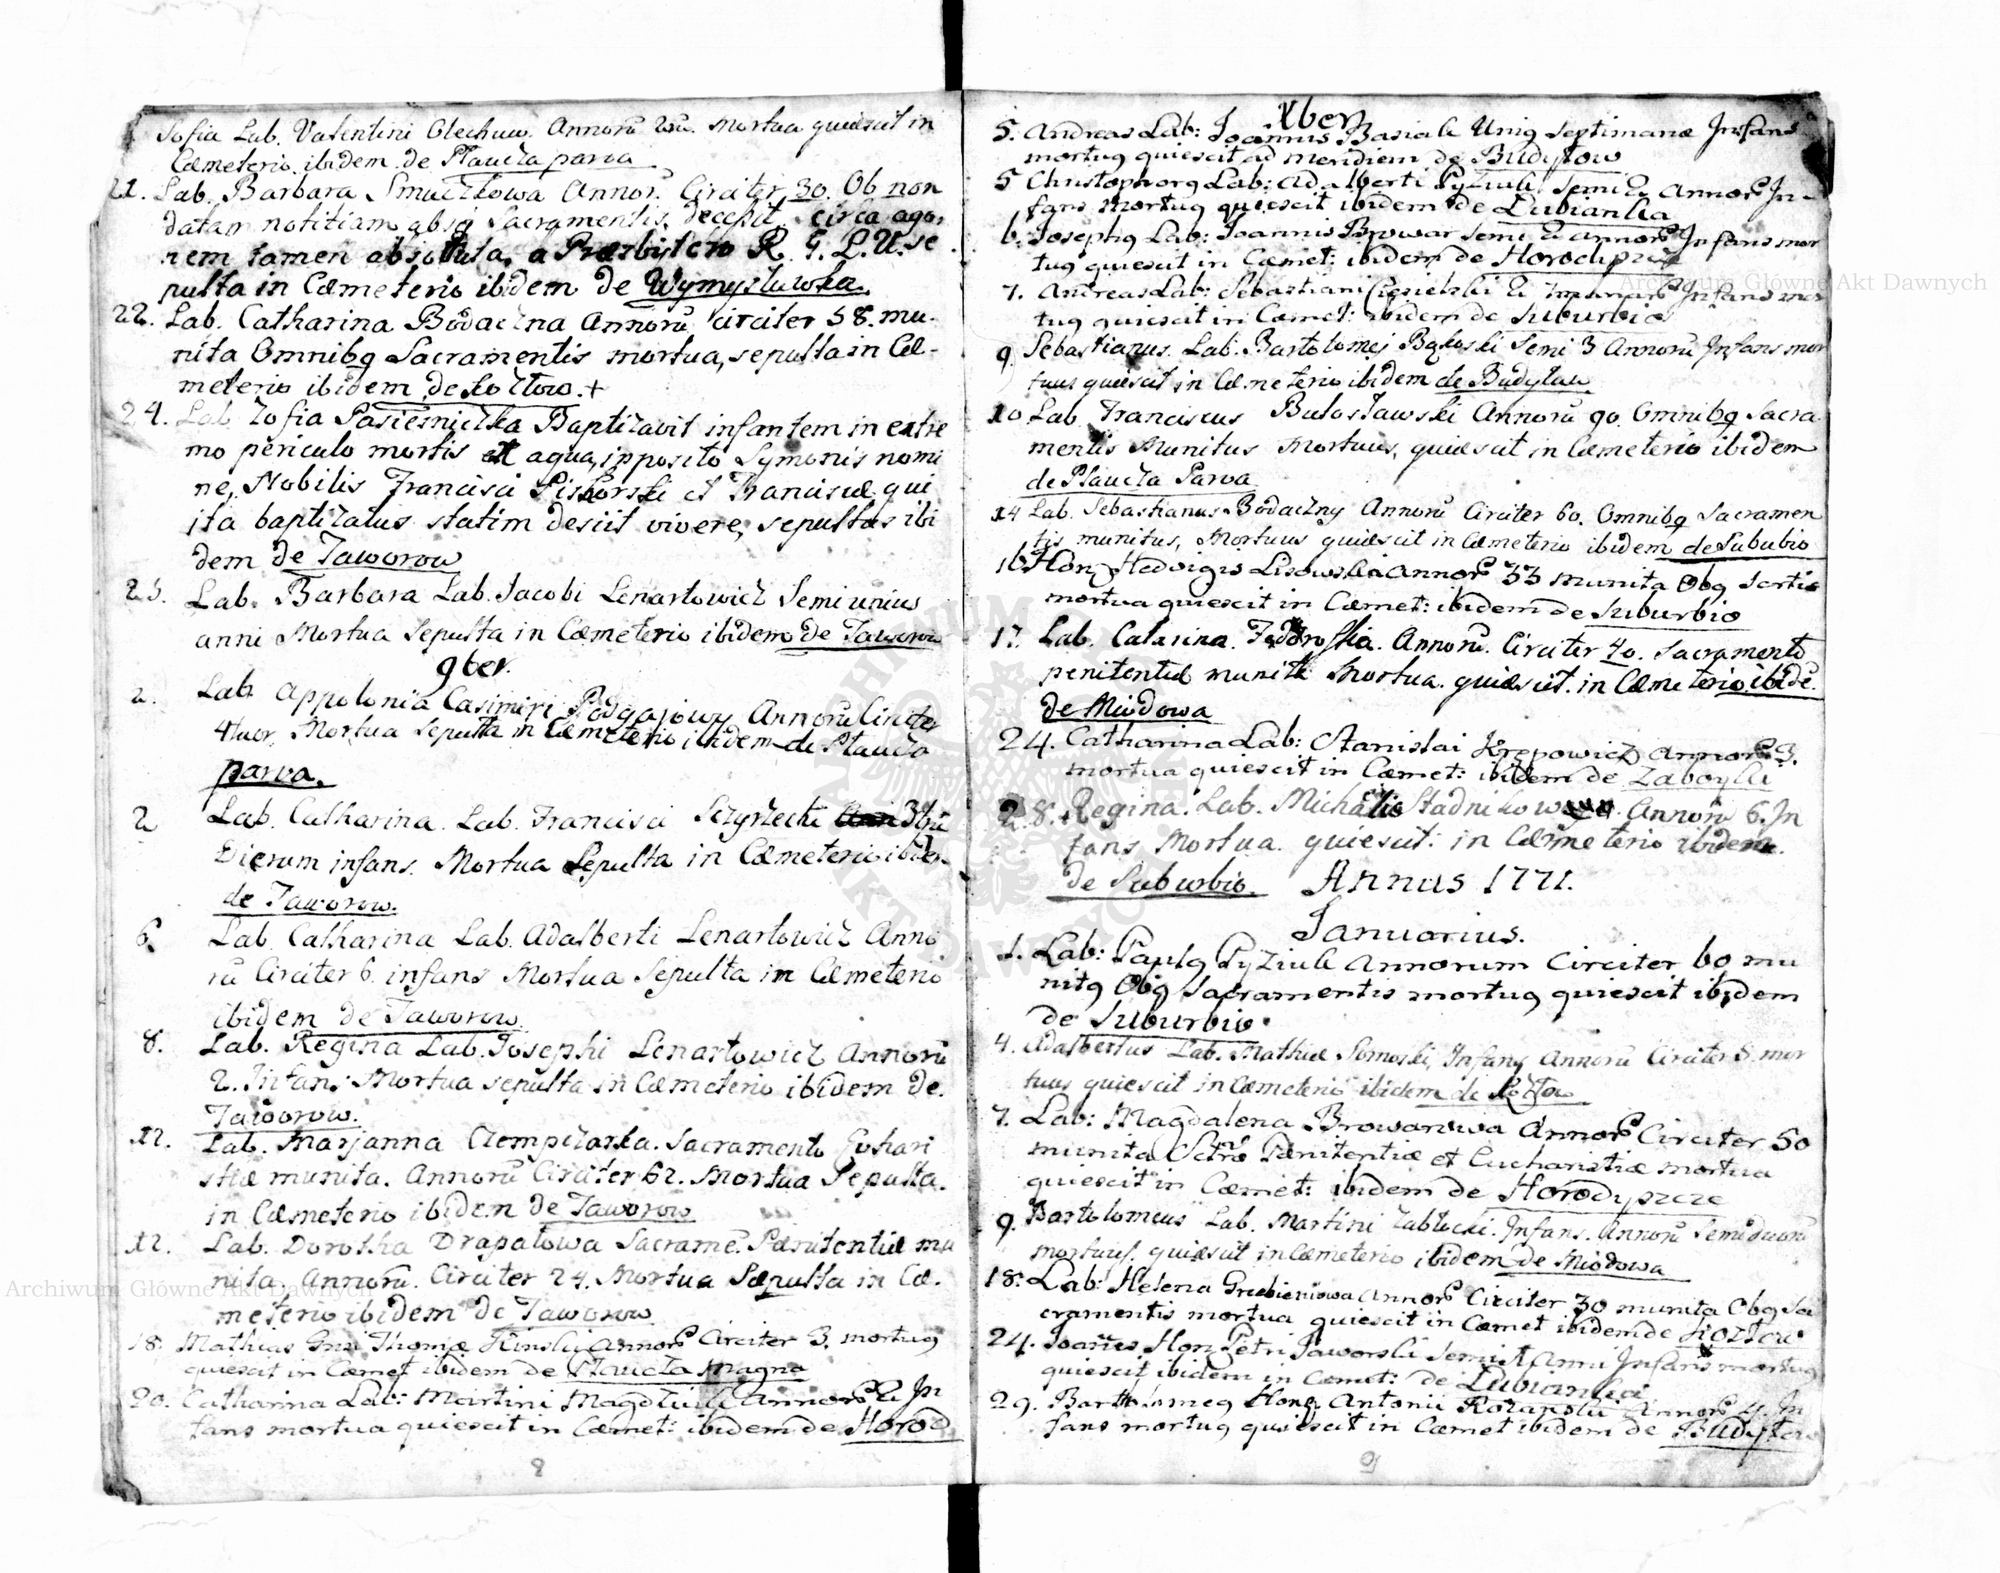 Sofia Lab. Valentini Olechuw. Annorũ mortua quiescit in
Cæmeterio ibidem de Płaucza parva
21. Lab. Barbara Smaczkowa Annor. Circiter 30. Ob non
datam notitiam absq Sacramentis decessit, circa ago
nem tamen absoluta, a Præsbytero R. G. L. U. se
pulta in Cæmeterio ibidem de Wymysłuwka.
22. Lab. Catharina Bodaczna Annorũ circiter 58. mu-
nita Omnibq Sacramentis mortua, sepulta in Cæ-
meterio ibidem de Kozłow. +
24. Lab. Zofia Pasiesniczka Baptizavit infantem in extre
mo periculo mortis aqua, ipposito Symonis nomi
ne, Nobilis Francisci Piskorski et Franciscæ, qui
ita baptizatus statim desiit vivere, sepultus ibi
dem de Jaworow
25. Lab. Barbara Lab. Jacobi Lenartowicz Semi unius
anni Mortua Sepulta in Cæmeterio ibidem de Jaworow
9ber.
2. Lab. Appolonia Casimiri Podgajowy Annorũ Circiter
4tuor. Mortua Sepulta in Cæmeterio ibidem de Płaucza
parva.
2 Lab. Catharina Lab. Francisci Szyrzecki 3triũ
Dierum infans. Mortua Sepulta in Cæmeterio ibidem
de Jaworow.
6. Lab. Catharina Lab. Adalberti Lenartowicz Anno
rũ Circiter 6. infans Mortua Sepulta in Cæmeterio
ibidem de Jaworow
8. Lab. Regina Lab. Josephi Lenartowicz Annorũ
2. Infans Mortua sepulta in Cæmeterio ibidem de
Jaworow.
12. Lab. Marjanna Czempczarka. Sacramento Eukari
stiæ munita. Annorũ Circiter 62. Mortua Sepulta.
in Cæmeterio ibidem de Jaworow
12. Lab. Dorotha Drapałowa Sacrame. Pænitentiæ mu
nita, Annorũ. Circiter 24. Mortua Sæpulta in Cæ.
meterio ibidem de Jaworow
18. Mathias Thomæ Annor Circiter 3. mortuq
quiescit in Cæmet ibidem de Płaucza magna
20. Catharina Lab: Martini Magdziuk Annor 2 In
fans mortua quiescit in Cæmet: ibidem de Horod
8
Xber
5. Andreas Lab: Joannis Basiak Uniq Septimanæ Infans
mortuq quiescit ad meridiem de Budyłow
5 Christophorq Lab: Adalberti Pyziuk Semi 2 Annor In-
fans mortuq quiescit ibidem de Lubianka
6. Josephq Lab: Joannis Browar Semi 2 Annor Infans mor
tuq quiescit in Cæmet: ibidem de Horodyszcze
7. Andreas Lab: Sebastiani Ciesielski 2 Infans mor
tuq quiescit in Cæmet: ibidem de Suburbio
9 Sebastianus Lab. Bartolomei Bąkoski Semi 3 Annorũ Infans mor
tuus quiescit in Cæmeterio ibidem de Budyłuw
10 Lab. Franciscus Bułosławski Annorũ 90. Omnibq Sacra
mentis Munitus Mortuus, quiescit in Cæmeterio ibidem
de Płaucza Parva
14 Lab. Sebastianus Bodaczny Annorũ Circiter 60. Omnibq Sacramen
tis munitus, Mortuus quiescit in Cæmeterio ibidem de Sububio
16 Hon Hedvigis Lisowska Annor 33 munita Obq
mortua quiescit in Cæmet: ibidem de Suburbio
17. Lab. Catarina. Annorũ. Circiter 40. Sacramento
penitentiæ munita Mortua. quiescit. in Cæmeterio ibidẽ.
de Miodowa
24. Catharina Lab: Stanislai Krępowicz Annor 3.
mortua quiescit in Cæmet: ibidem de Zaboyki
28. Regina. Lab. Michælis Annorũ 6. In
fans Mortua. quiescit: in Cæmeterio ibidem.
de Suburbio. Annus 1771.
Januarius.
1. Lab: Paulq Pyziuk Annorum Circiter 60 mu
nitq Obq Sacramentis mortuq quiescit ibidem
de Suburbio.
4. Adalbertus Lab. Mathiæ Somoski, Infans Annorũ Circiter 5. mor
tuus quiescit in Cæmeterio ibidem de Kozłow
7. Lab: Magdalena Browarowa Annor Circiter 50
munita Sctrẽ Pænitentiæ et Eucharistiæ mortua
quiescit in Cæmet: ibidem de Horodyszcze
9. Bartolomeus Lab. Martini Zabłocki. Infans. Annorũ Semiduorũ
mortuus. quiescit in Cæmeterio ibidem de Miodowa
18. Lab: Helena Grebieniowa Annor Circiter 30 munita Obq Sa
cramentis mortua quiescit in Cæmet ibidem de Kozłow
24. Joañes Hon Petri Jaworski Semi 1 Anni Infans mortuq
quiescit ibidem in Cæmet: de Lubianka
29. Bartholomeq Honq Antonii Rozański Annor 4. In
fans mortuq quiescit in Cæmet ibidem de Budyłow
9
Archiwum Główne Akt Dawnych
Archiwum Główne Akt Dawnych
ARCHIWUM GŁÓWNE AKT DAWNYCH